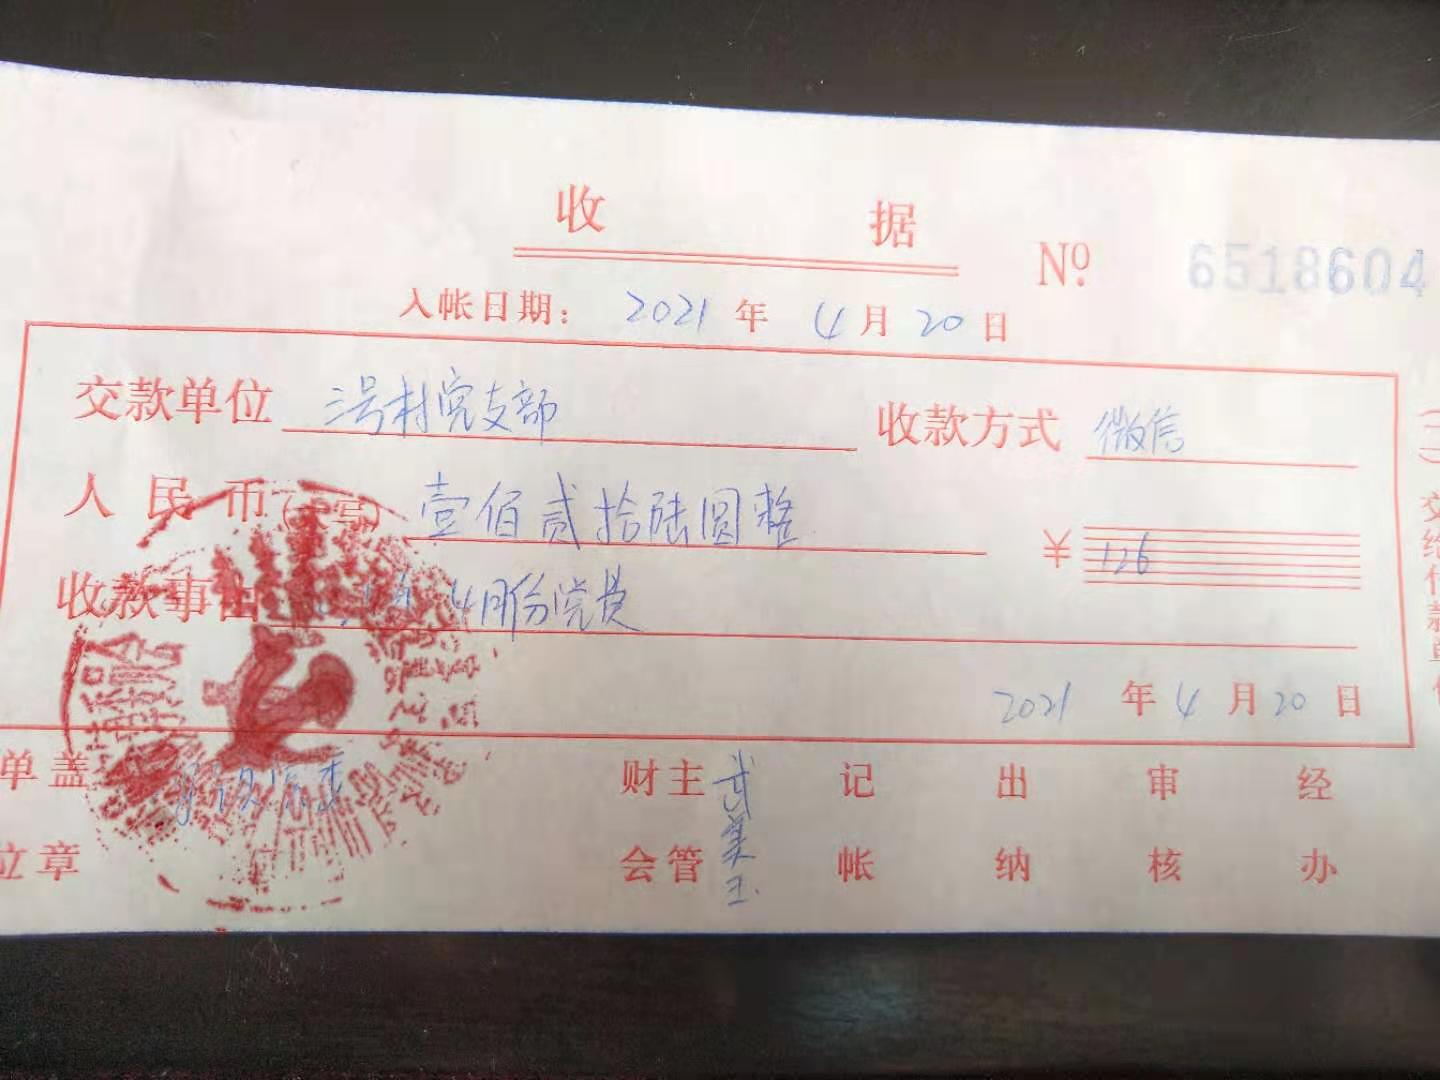 收据
No 6518604
入帐日期: 2021 年 4 月 20 日
交款单位 三号村党支部 收款方式 微信
人民币 壹佰贰拾陆圆整 ¥ 126
收款事由 4月份党费
2021 年 4 月 20 日
单盖 财主 记 出 审 经
立章 会管 帐 纳 核 办
(二) 交给付款单位